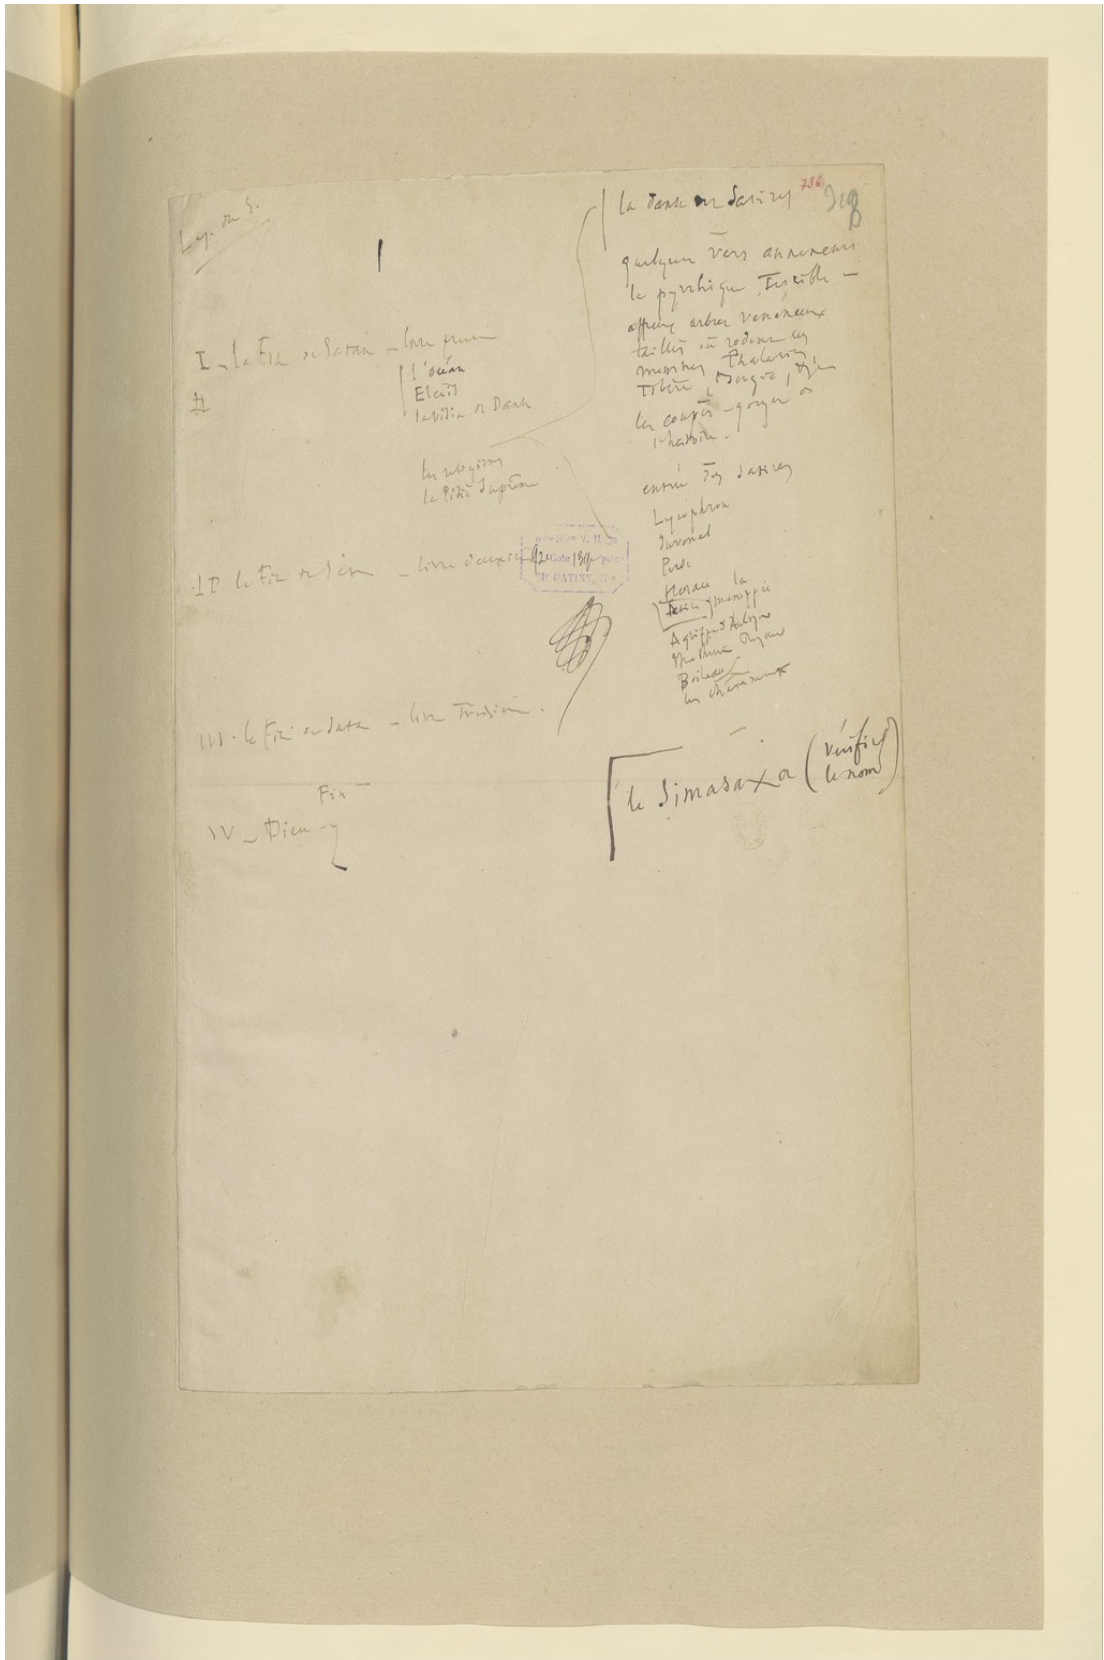 Lég. des S.
I
I - la Fin de Satan - livre premier
l'océan
Elciis
la vision de Dante
II
les religions
la Pitié Suprême
II la Fin de Satan - livre deuxième
III. la Fin de Satan - livre Troisième.
Fin
IV - Dieu -
736
la danse des Satires
quelques vers annonçant
la pyrrhique Terrible -
affreux arbres vénéneux
taillis où rodent les
monstres Phalaris,
Tibère, Borgia,
les coupe-gorges de
l'histoire.
entrée des satires
Lycophron
Juvénal
Perse
Horace la
Satire Ménippée
Agrippa d'Aubigné
Mathurin Régnier
Boileau
les châtiments
le Simasaxa (vérifier
le nom)
V. Hugo
Cote
GATINE